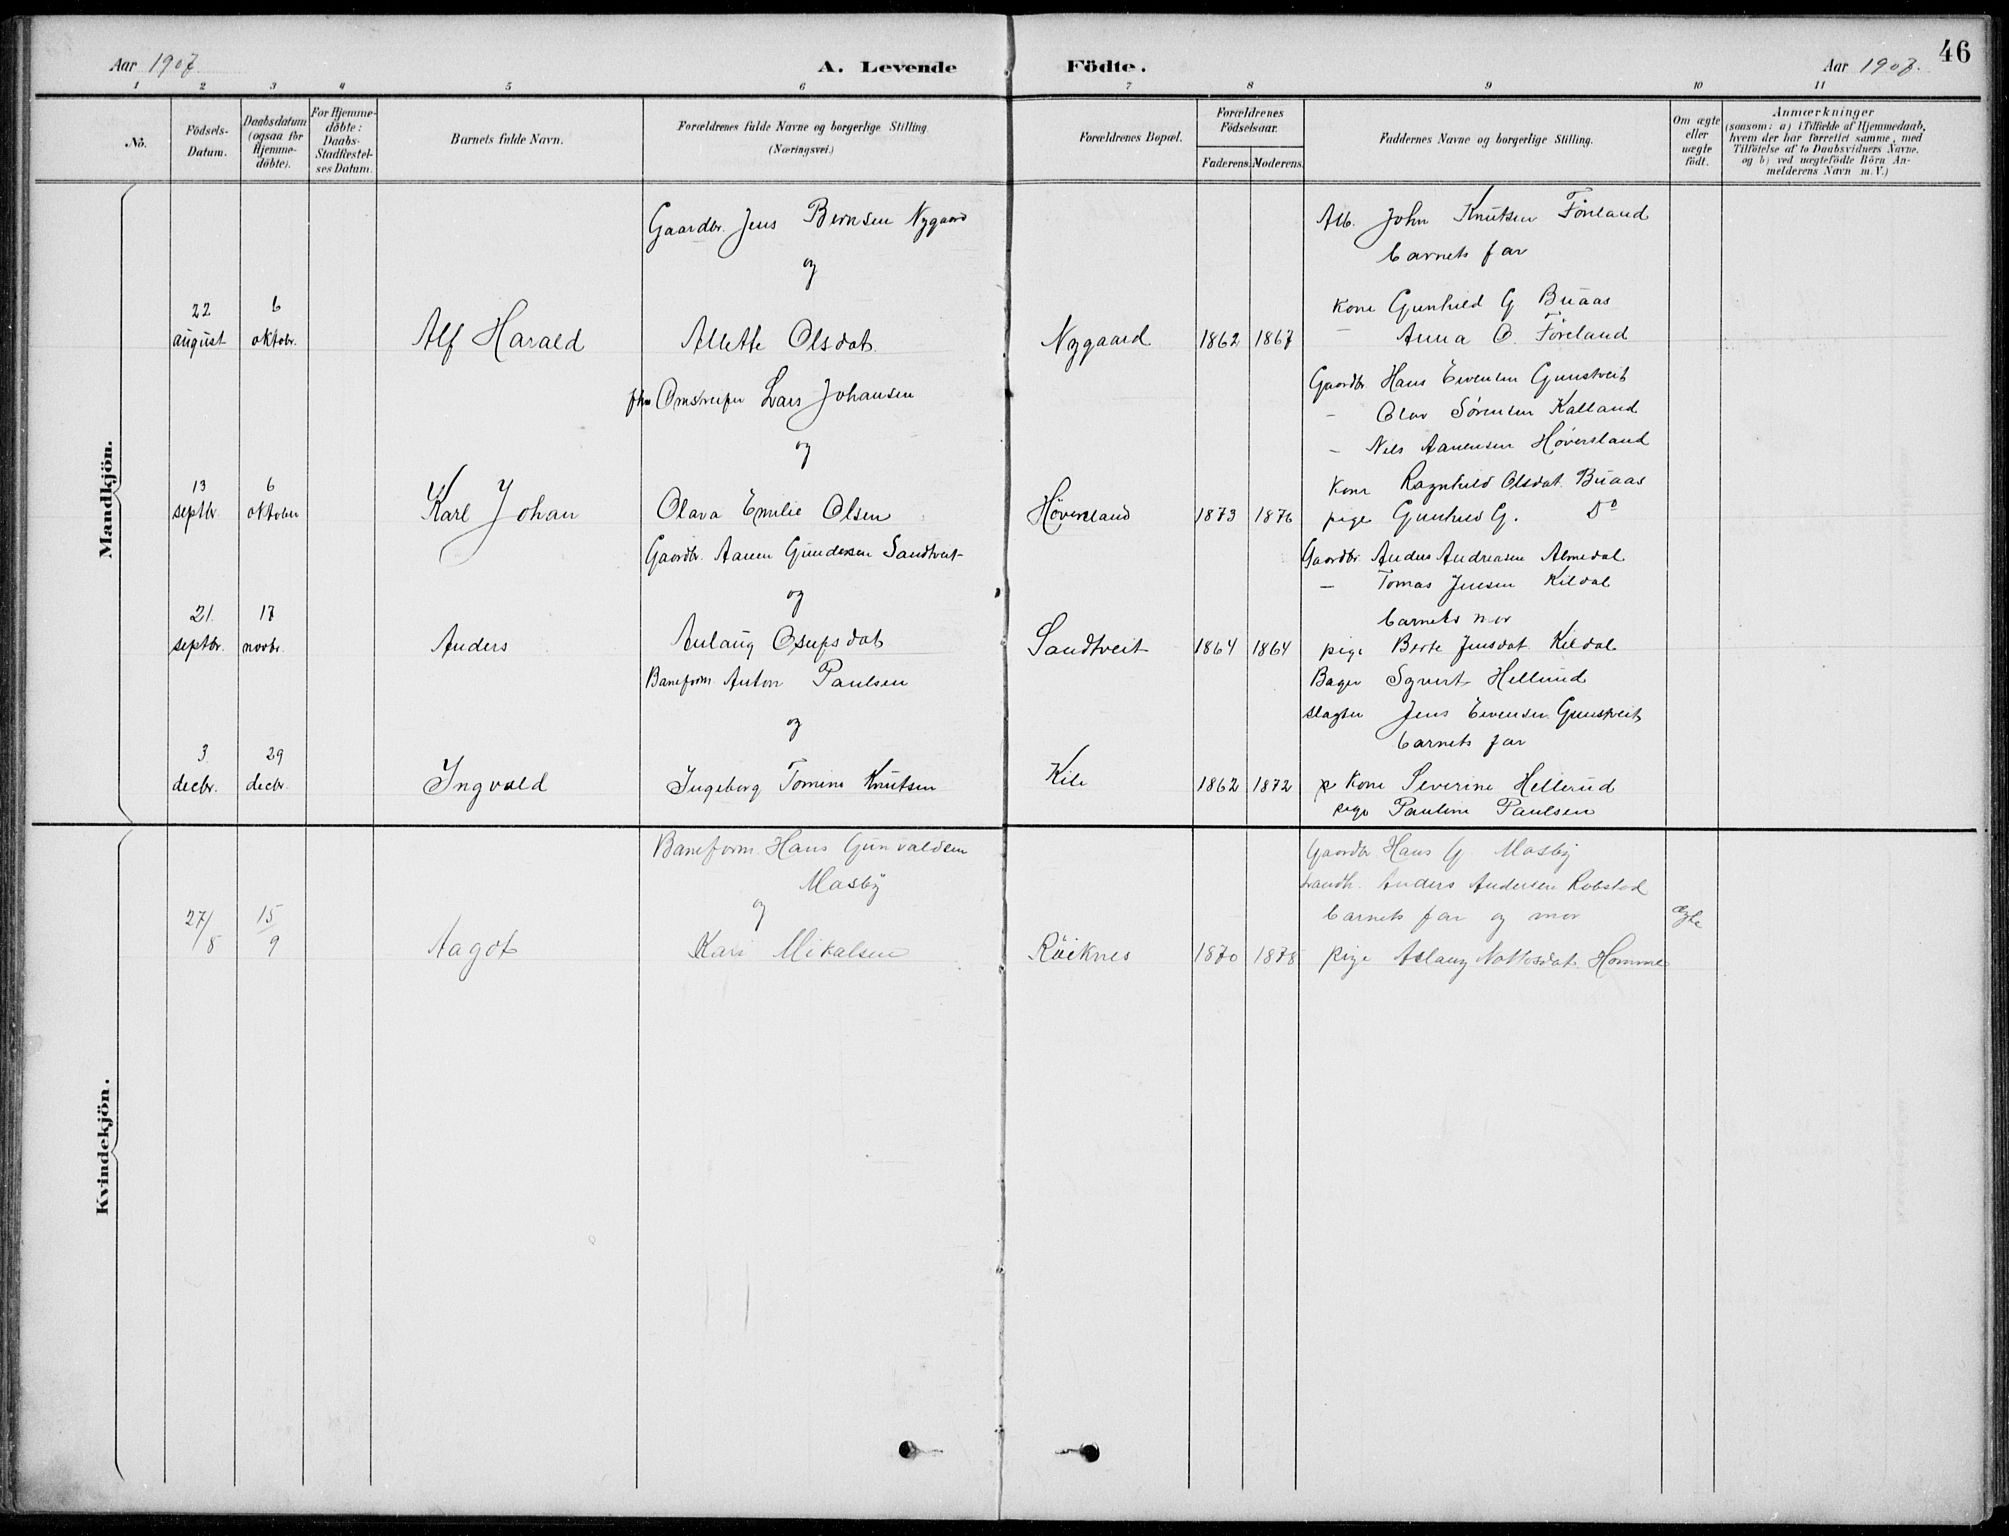 Aar 1907.
A. Levende
Födte.
Aar 1907.
46
1 2 3 4 5 6 7 8 9 10 11
No.
Födsels-
Datum.
Daabsdatum
(ogsaa for
Hjemme-
döbte).
For Hjemme-
döbte:
Daabs-
Stadfæstel-
ses Datum.
Barnets fulde Navn.
Forældrenes fulde Navne og borgerlige Stilling.
(Næringsvei.)
Forældrenes Bopæl.
Forældrenes
Födselsaar.
Faderens. Moderens.
Faddernes Navne og borgerlige Stilling.
Om ægte
eller
uægte
födt.
Anmærkninger
(saasom: a) i Tilfælde af Hjemmedaab,
hvem der har forrettet samme, med
Tilföielse af to Daabsvidners Navne,
og b) ved uægtefödte Börn An-
melderens Navn m. V.)
Mandkjön.
22
august
6
oktobr.
Alf Harald
Gaardbr. Jens Bernsen Nygaard
og
Allette Olsdat.
Nygaard
1862 1867
Arb. John Knutsen Föreland
barnets far
Kone Gunhild G Buaas
– Anna O. Föreland
13
septbr.
6
oktober
Karl Johan
Lars Johansen
og
Olava Emilie Olsen
Höversland
1873 1876
Gaardbr. Hans Evensen Gunstveit
– Olav Sörensen Kalland
– Nels Aanensen Höversland
Kone Ragnhild Olsdat. Buaas
pige Gunhild G. Do
21.
septbr.
17
novbr.
Anders
Gaardbr. Aanen Gundersen Sandtveit
og
Aslaug Osufsdat
Sandtveit
1864 1864
Gaardbr. Anders Andreasen Almedal
– Tomas Jensen Kildal
barnets mor
pige Berte Jensdat. Kildal
3
decbr.
29
decbr.
Ingvald
Baneform. Anton Paulsen
og
Ingeborg Tomine Knutsen
Kile
1862 1872
Bager Sgvert Hellerud
slagter Jens Evensen Gunstveit
barnets far
Kone Severine Hellerud
pige Pauline Paulsen
Kvindekjön.
27/8
15/9
Aagot
Baneform. Hans Gunvaldsen
Mosby
og
Kari Mikalsen
Röiknes
1870 1878
Gaardbr Hans G. Mosby
Landh. Anders Andersen Robstad
barnets far og mor
pige Aslaug Nottosdat. Homme
ægte